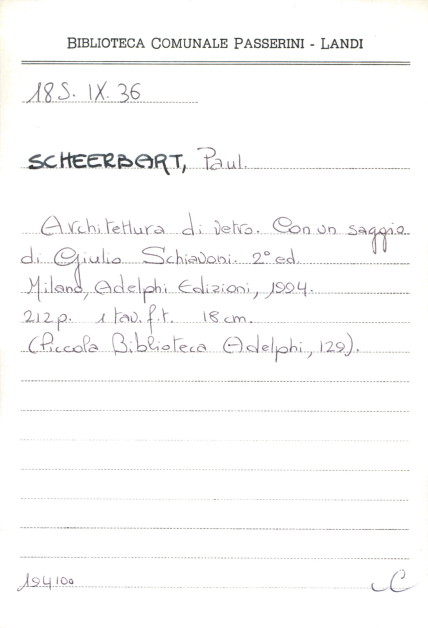 BIBLIOTECA COMUNALE PASSERINI - LANDI
18S. IX. 36
SCHEERBART, Paul.
Architettura di vetro. Con un saggio
di Giulio Schiavoni. 2° ed.
Milano, Adelphi Edizioni, 1994.
212 p. 1 tav. f. t. 18 cm.
(Piccola Biblioteca Adelphi, 129).
194100
C